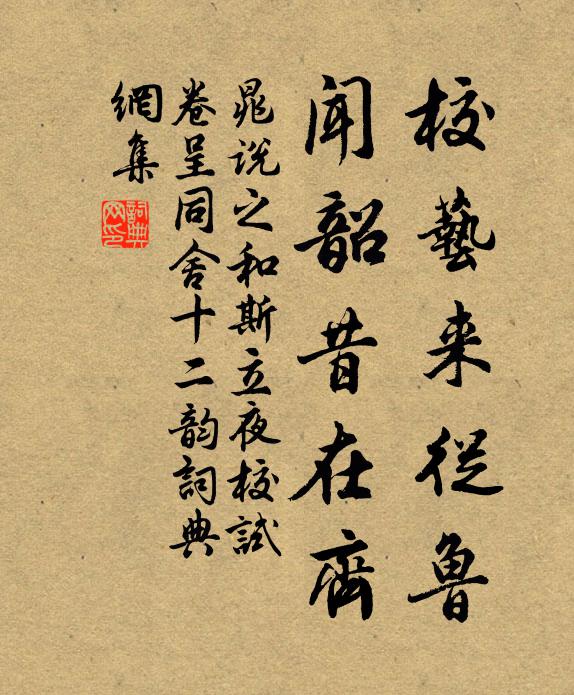 校藝来從魯
聞韶昔在齊
晁說之和斯立夜校試
卷呈同舍十二韵詞典
網集
詞典
网印